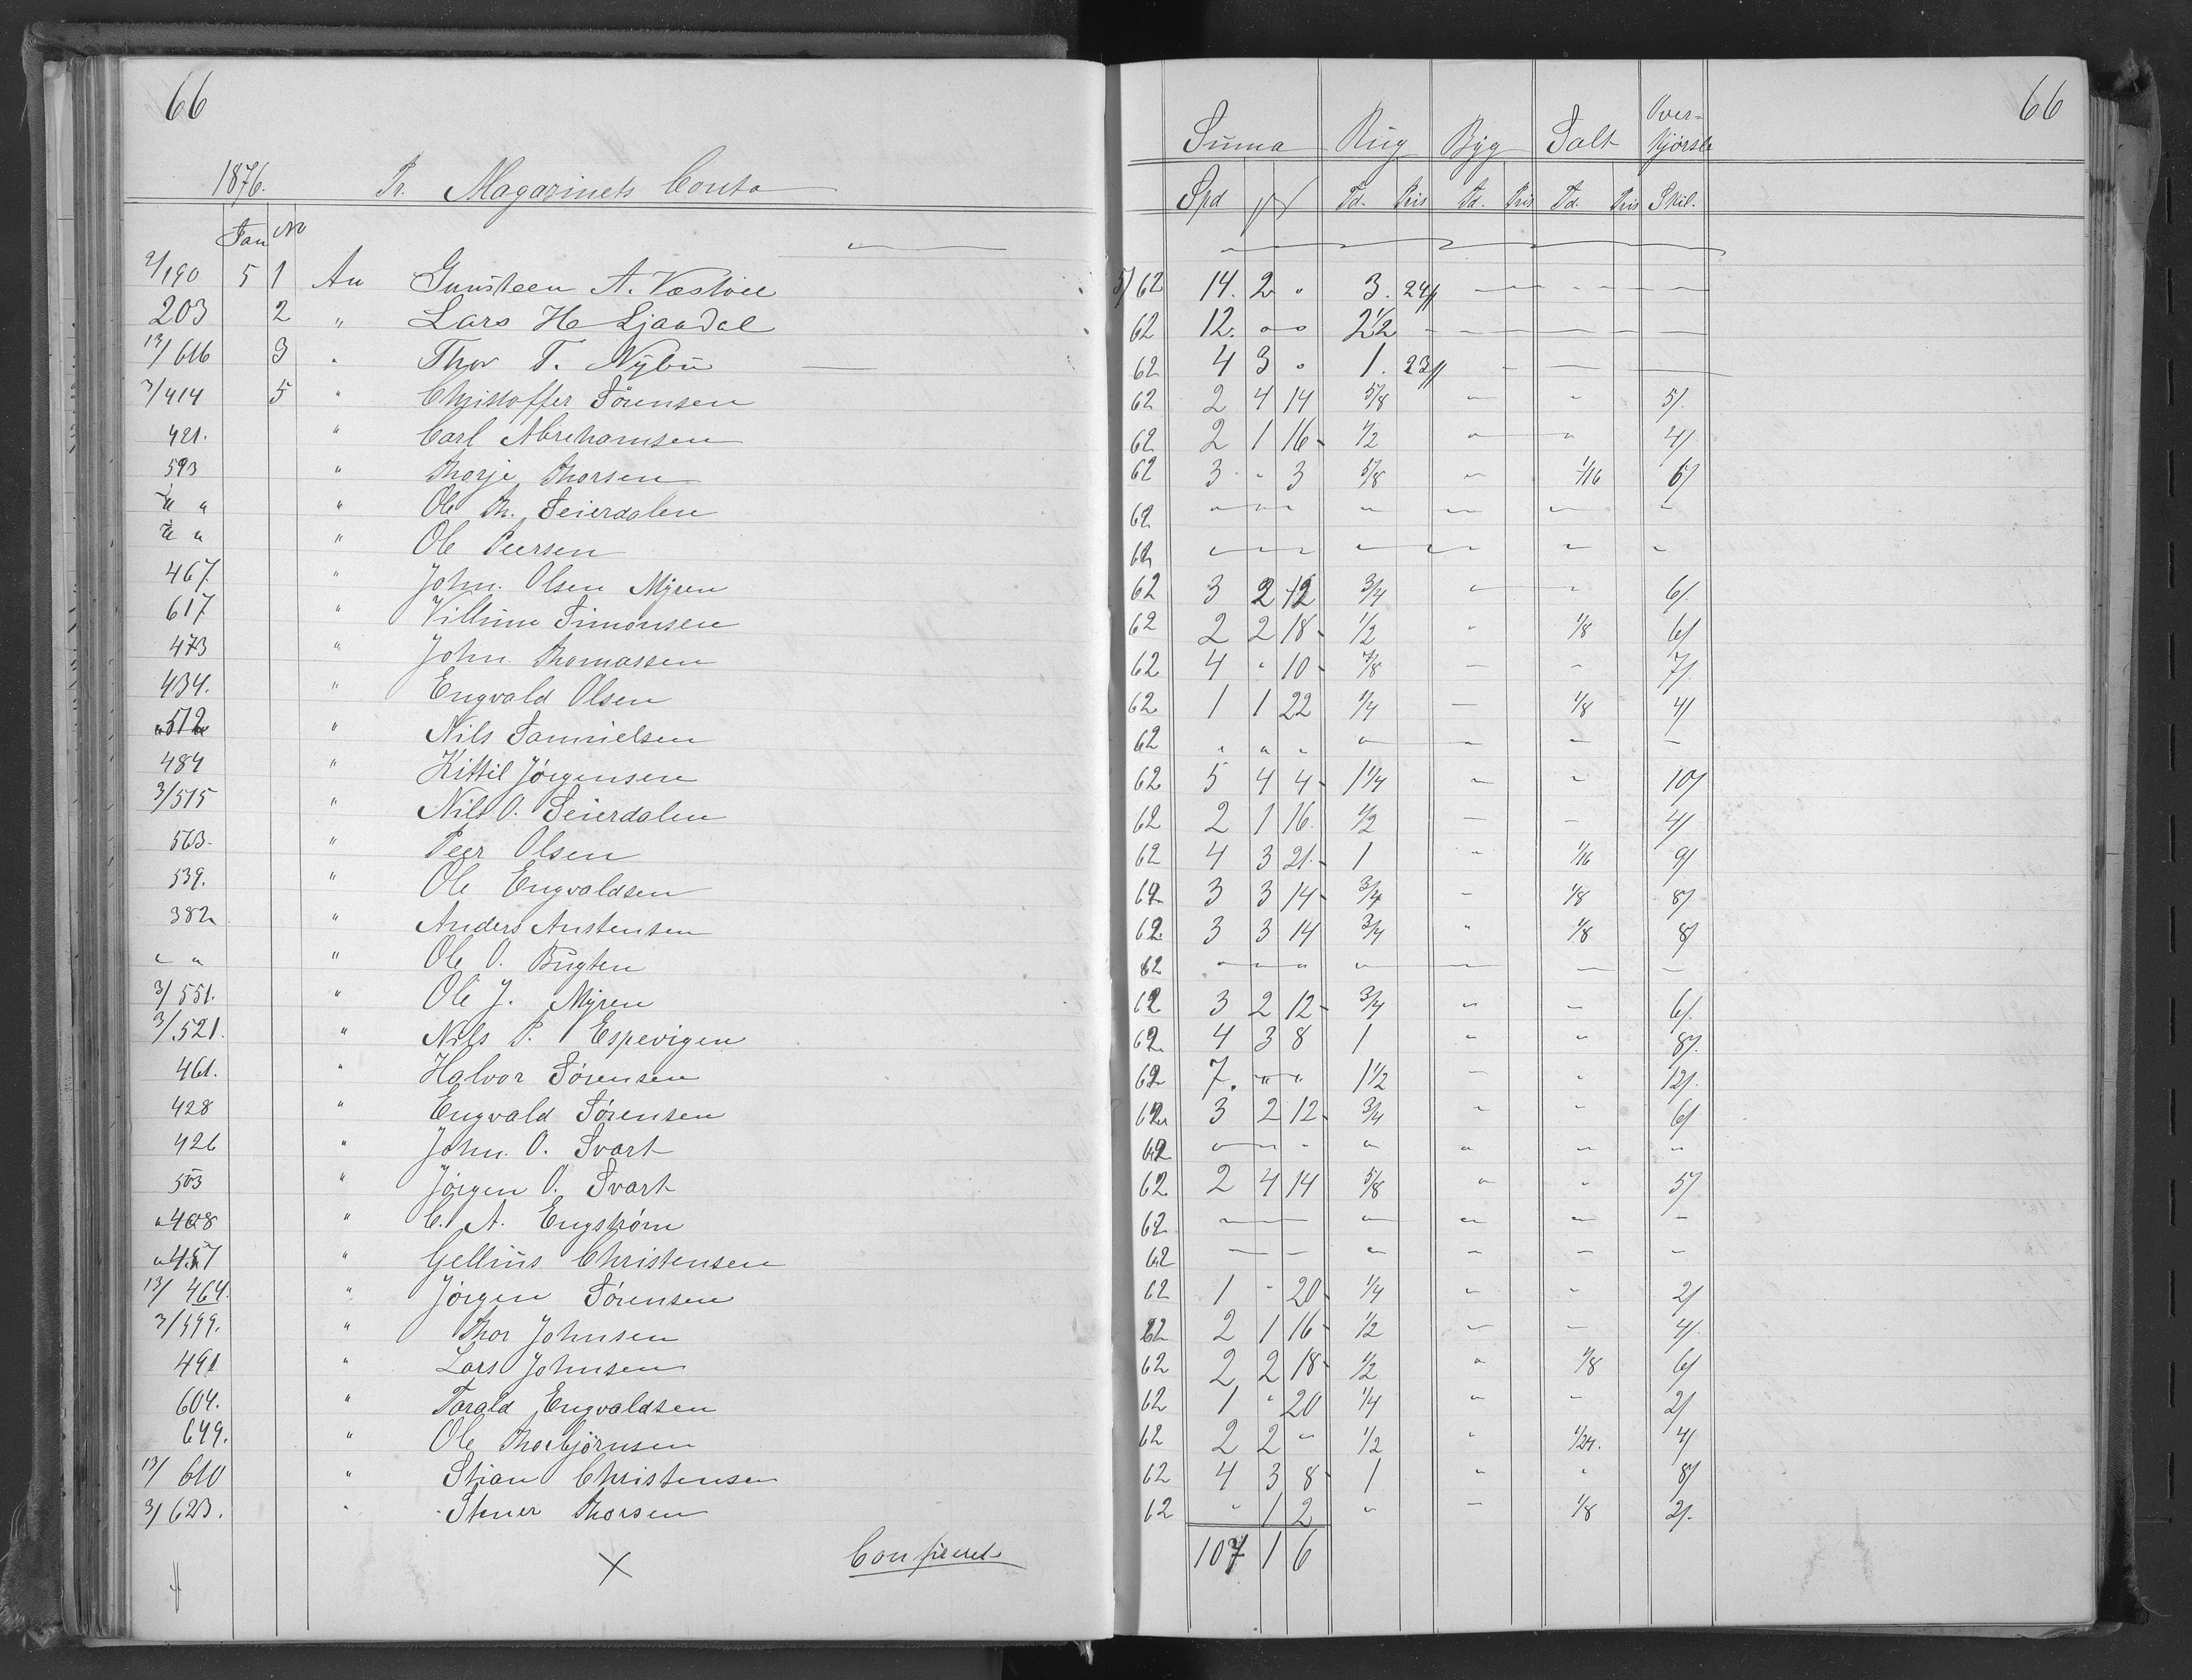 66
1876. Pr. Magazinets Conto
Jan No
2/190 5 1 An Gunsteen A. Vastvee
203 2 " Lars H. Ljaadal
13/616 3 " Thor T. Nÿbu
3/414 5 " Christoffer Sörensen
421. " Carl Abrehamsen
593 " Thorje Thorsen
" " " Ole Th. Seierdalen
" " " Ole Peersen
467. " John. Olsen Mÿren
617 " Villum Simonsen
473 " John. Thomassen
434. " Engvald Olsen
512 " Nils Samuelsen
484 " Kittil Jörgensen
3/515 " Nils O. Seierdalen
563. " Peer Olsen
539. " Ole Engvaldsen
382 " Anders Anstensen
" " " Ole O. Bugten
3/551. " Ole J. Mÿren
3/521. " Nils P. Espevigen
461. " Halvor Sörensen
428 " Engvald Sörensen
426 " John. O. Svart
503 " Jörgen O. Svart
"408 " C. A. Engström
"457 " Gellius Christensen
13/464. " Jörgen Sörensen
3/499. " Thor Johnsen
491 " Lars Johnsen
604. " Tarald Engvaldsen
649. " Ole Thorbjörnsen
13/610 " Stian Christensen
3/623. " Stener Thorsen
X Confereret
66
Suma Rug Byg Salt Over-
kjörsle
Spd Td. Pris Td. Pris Td. Pris Skil.
5/62 14. 2 " 3. 24
62 12. " " 2 1/2
62 4 3 " 1. 23
62 2 4 14 5/8 " " 5/.
62 2 1 16 1/2 " " 4/
62 3 " 3 5/8 " 1/16 6/
62 " " " " " " "
62 " " " " " " "
62 3 2 12 3/4 " " 6/.
62 2 2 18 1/2 " 1/8 6/
62 4 " 10 7/8 " " 7/
62 1 1 22 1/4 " 1/8 4/
62 " " " " " " "
62 5 4 4 1 1/4 " " 10/
62 2 1 16 1/2 " " 4/
62 4 3 21 1 " 1/16 9/
62 3 3 14 3/4 " 1/8 8/
62 3 3 14 3/4 " 1/8 8/
62 " " " " " " "
62 3 2 12 3/4 " " 6/.
62 4 3 8 1 " " 8/.
62 7. " " 1 1/2 " " 12/.
62 3 2 12 3/4 " " 6/
62 " " " " " " "
62 2 4 14 5/8 " " 5/
62 " " " " " " "
62 " " " " " " "
62 1 " 20 1/4 " " 2/
62 2 1 16 1/2 " " 4/.
62 2 2 18 1/2 " 1/8 6/
62 1 " 20 1/4 " " 2/
62 2 2 " 1/2 " 1/24. 4/
62 4 3 8 1 " " 8/
62 " 1 2 " " 1/8 2/.
107 1 6